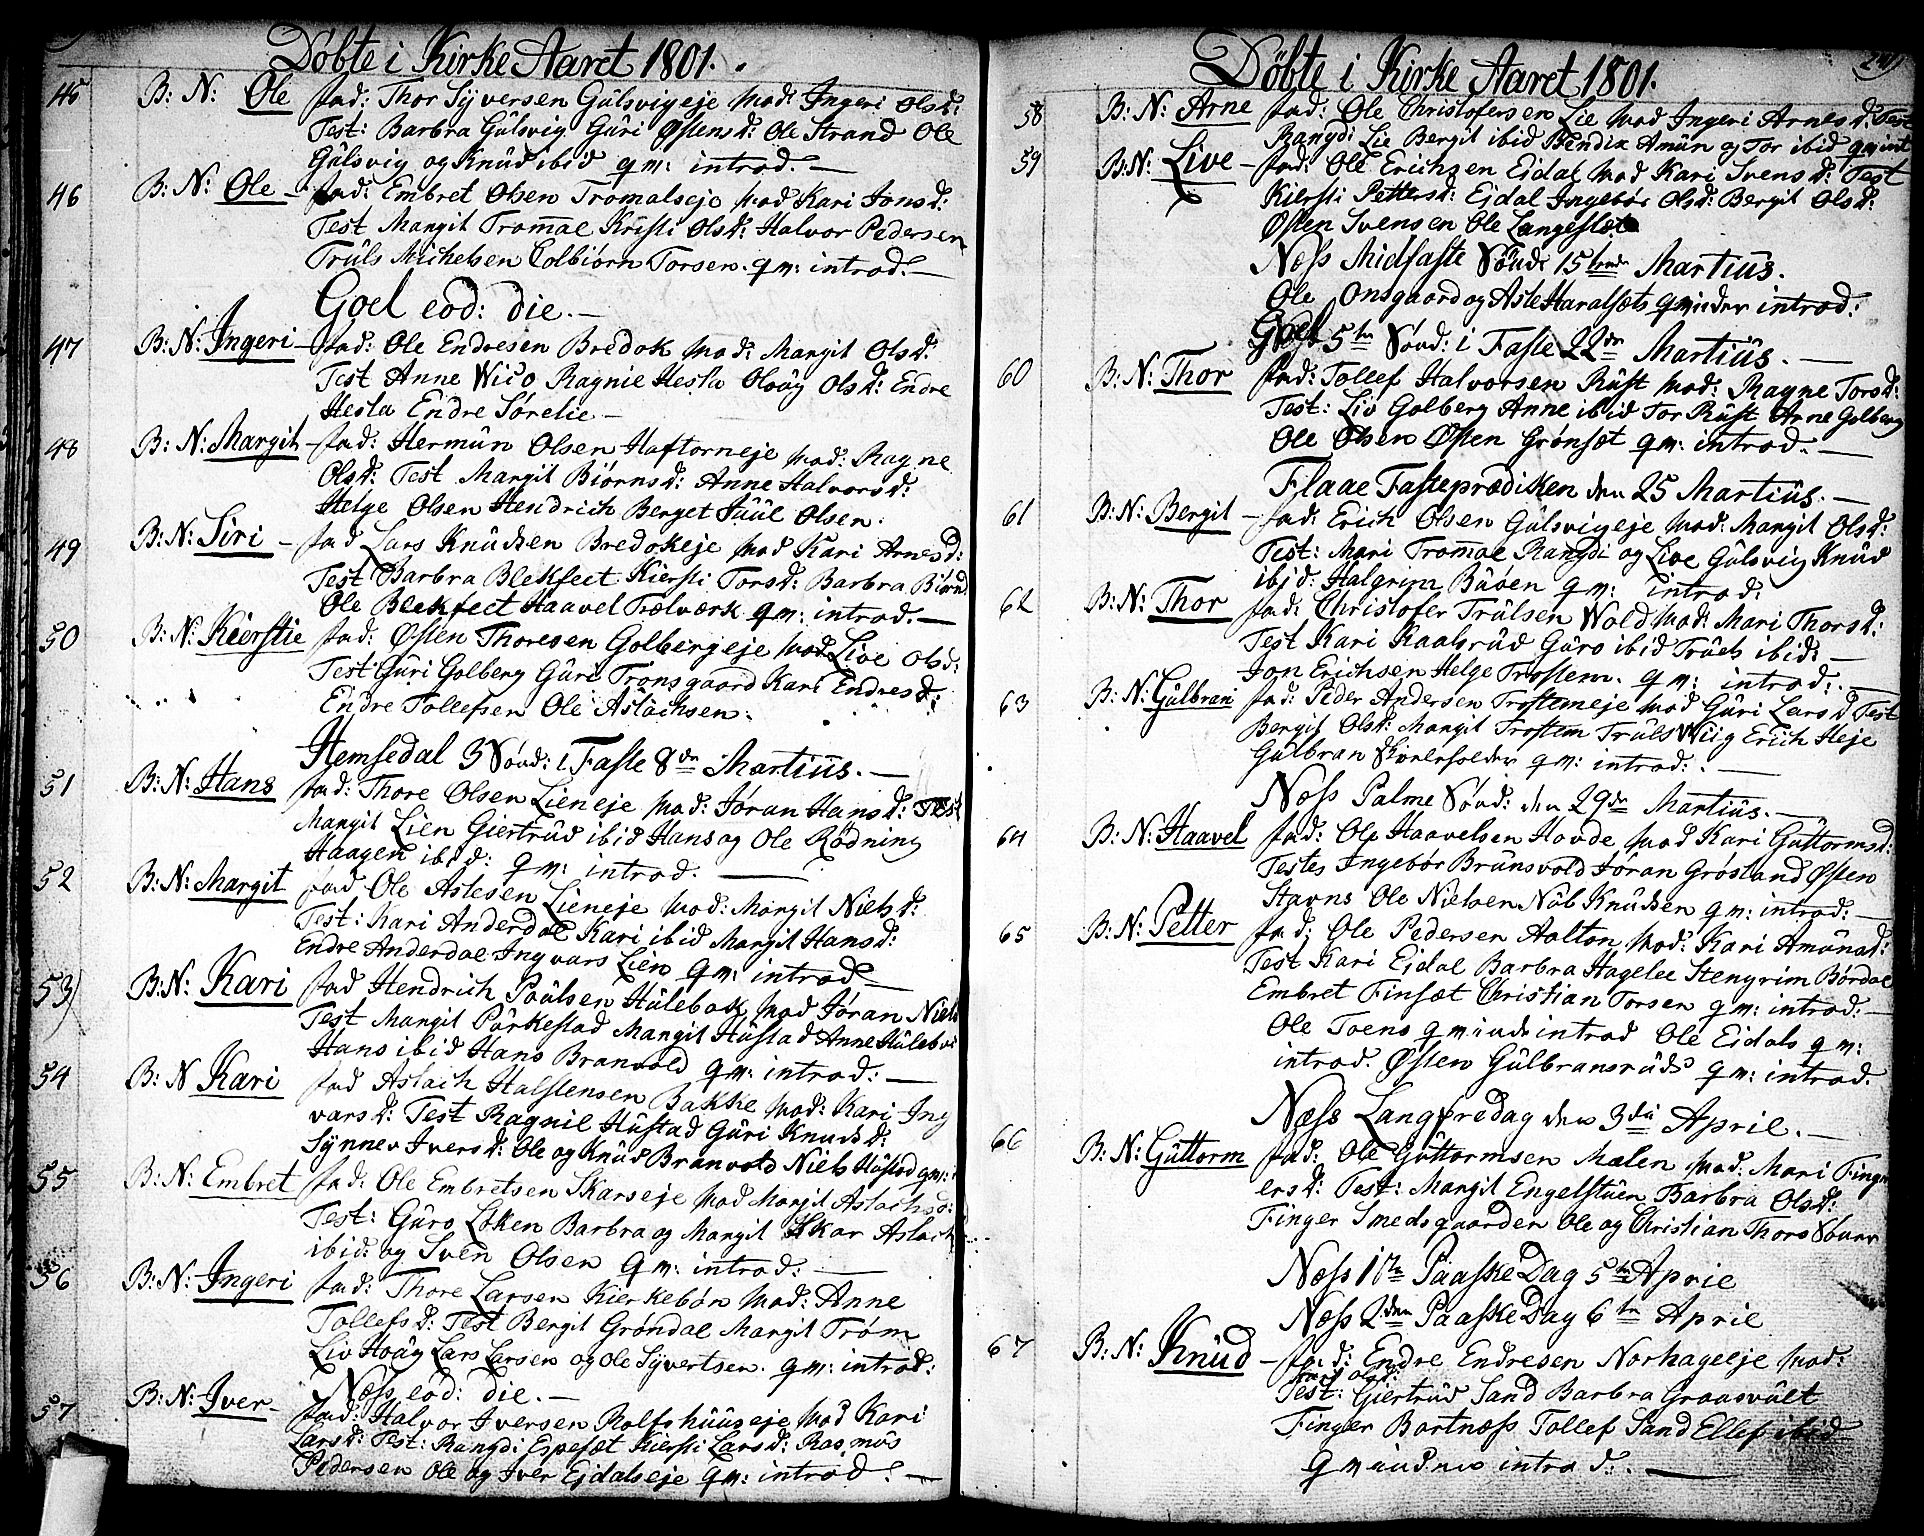 Döbte i Kirke Aaret 1801.
45 B: N: Ole fad: Thor Syversen Gülsvigeje Mod: Ingeri Olsd:
Test: Barbra Gülsvig Güri Østensd: Ole Strand Ole
Gülsvig og Knüd ibid q m: introd. —
46 B: N: Ole — fad: Embret Olsen Tromalseje Mod Kari Jonsd:
Test Margit Tromae Kristi Olsd: Halvor Pedersen
Trüls Michelsen Colbiørn Torsen. q m: introd. —
Goel eod: die. —
47 B: N: Ingeri — fad: Ole Endresen Bredok Mod: Margit Olsd:
Test Anne Wico Ragnie Hesla Olaüg Olsd: Endre
Hesla Endre Sørelie —
48 B: N: Margit — fad: Hermün Olsen Haftorneje Mod: Ragne
Olsd: Test Margit Biørnsd: Anne Halvorsd:
Helge Olsen Hendrich Berget Jüül Olsen.
49 B: N: Siri — fad Lars Knüdsen Bredokeje Mod Kari Arnesd:
Test Barbra Blekfeet Kiersti Torsd: Barbra Biørnd
Ole Blekfeet Haavel Trælværk q m: introd. —
50 B: N: Kierstie fad: Østen Thoresen Golbergeje Mod Live Olsd:
Test Güri Golberg Güri Tronsgaard Kari Endresd:
Endre Tollefsen Ole Aslachsen.
Hemsedal 3 Sönd: i Faste 8de Martiüs. —
51 B: N: Hans fad: Thore Olsen Lieneje Mod: Jöran Hansd: Test
Margit Lien Giertrüd ibid Hans og Ole Rödning
Haagen ibid: q m: introd. —
52 B: N: Margit fad Ole Aslesen Lieneje Mod: Margit Nielsd:
Test: Kari Anderdal Kari ibid Margit Hansd:
Endre Anderdal Ingvars Lien q m: introd —
53) B: N: Kari fad Hendrich Paülsen Hülebak Mod Jöran Niels
Test Margit Pürkestad Margit Hüstad Anne Hülebak
Hans ibid Hans Branvold q m: introd: —
54 B: N Kari fad Aslach Halstensen Bakke Mod: Kari Ing
varsd: Test Ragnil Hüstad Güri Knudsd:
Synnev Iversd: Ole og Knüd Branvold Niels Hüstad q m: i
55 B: N: Embret fad: Ole Embretsen Skarseje Mod Margit Aslachsd:
Test: Güro Løken Barbra og Margit Skar Aslach
ibid: og Sven Olsen q m: introd: —
56 B: N: Ingeri fad: Thore Larsen Kierkebøn Mod: Anne
Tollefsd: Test Bergit Grøndal Margit Trøm
Liv Hoüg Lars Larsen og Ole Syvertsen. q m: introd:
Næss eod: die. —
57 B: N: Iver — fad: Halvor Iversen Rolfshüüseje Mod Kari
Larsd: Test: Rangdi Espesæt Kiersti Larsd: Rasmüs
Pedersen Ole og Iver Ejdalseje q m: introd: —
Döbte i Kirke Aaret 1801.
58 B: N: Arne fad: Ole Christofersen Lie Mod Ingeri Arnesd: Test
Rangdi Lie Bergit ibid Bendix Amün og Tor ibid q m int
59 B: N: Live — fad: Ole Erichsen Eidal Mod Kari Svensd: Test
Kiersti Pettersd: Ejdal Ingebör Olsd: Bergit Olsd:
Østen Svensen Ole Langeslet
Næss Midfaste Sönd: 15tende Martiüs.
Ole Onsgaard og Asle Haralsets qvinder introd:
Goel 5te Sönd: i Faste 22de Martiüs. —
60 B: N: Thor fad: Tollef Halvorsen Rüst Mod: Ragne Torsd:
Test: Liv Golberg Anne ibid Tor Rüst Arne Golberg
Ole Olsen Østen Grønset q m: introd. —
Flaae Fasteprædiken den 25 Martiüs. —
61 B: N: Bergit — fad: Erich Olsen Gülsvigeje Mod: Margit Olsd:
Test: Mari Tromae Rangdi og Live Gülsvig Knüd
ibid: Halgrim Büöen q m: introd:
62 B: N: Thor fad: Christofer Trülsen Wold Mod: Mari Thorsd:
Test Kari Kaalsrüd Güro ibid Trüls ibid: —
Jon Erichsen Helge Trostem. q m: introd: —
63 B: N: Gülbran fad: Peder Andersen Trostemeje Mod Güri Larsd Test
Bergit Olsd: Margit Trostem Trüls Wiig Erich Heje
Gülbran q m: introd: —
Næss Palme Sönd: den 29de Martiüs. —
64 B: N: Haavel fad: Ole Haavelsen Hovde Mod Kari Güttormsd:
Testes Ingebör Brünsvold Jöran Gröstand Østen
Stavns Ole Nielsen Nüb Knüdsen q m: introd: —
65 B: N: Petter fad: Ole Pedersen Aalton Mod: Kari Amünsd:
Test Kari Ejdal Barbra Hagelee Stengrim Børdal
Embret Finsæt Christian Torsen q m: introd: —
Ole Toens qvinde introd Ole Eidals q m:
introd. Østen Gülbransrüds q m: introd.
Næss Langfredag den 3die April. —
66 B: N: Güttorm fad: Ole Güttormsen Mælen Mod: Mari Fing
ersd: Test: Margit Engelstüen Barbra Olsd:
Finger Smedsgaarden Ole og Christian Thors
Næss 1te Paaske Dag 5te Aprie
Næss 2den Paaske Dag 6te Aprie
67 B: N: Knüd — fad: Endre Endresen Norhageeje Mod:
Test: Giertrüd Sand Barbra Graasvült
Finger Bortnæss Tollef Sand Ellef ibid
qvindes introd: —